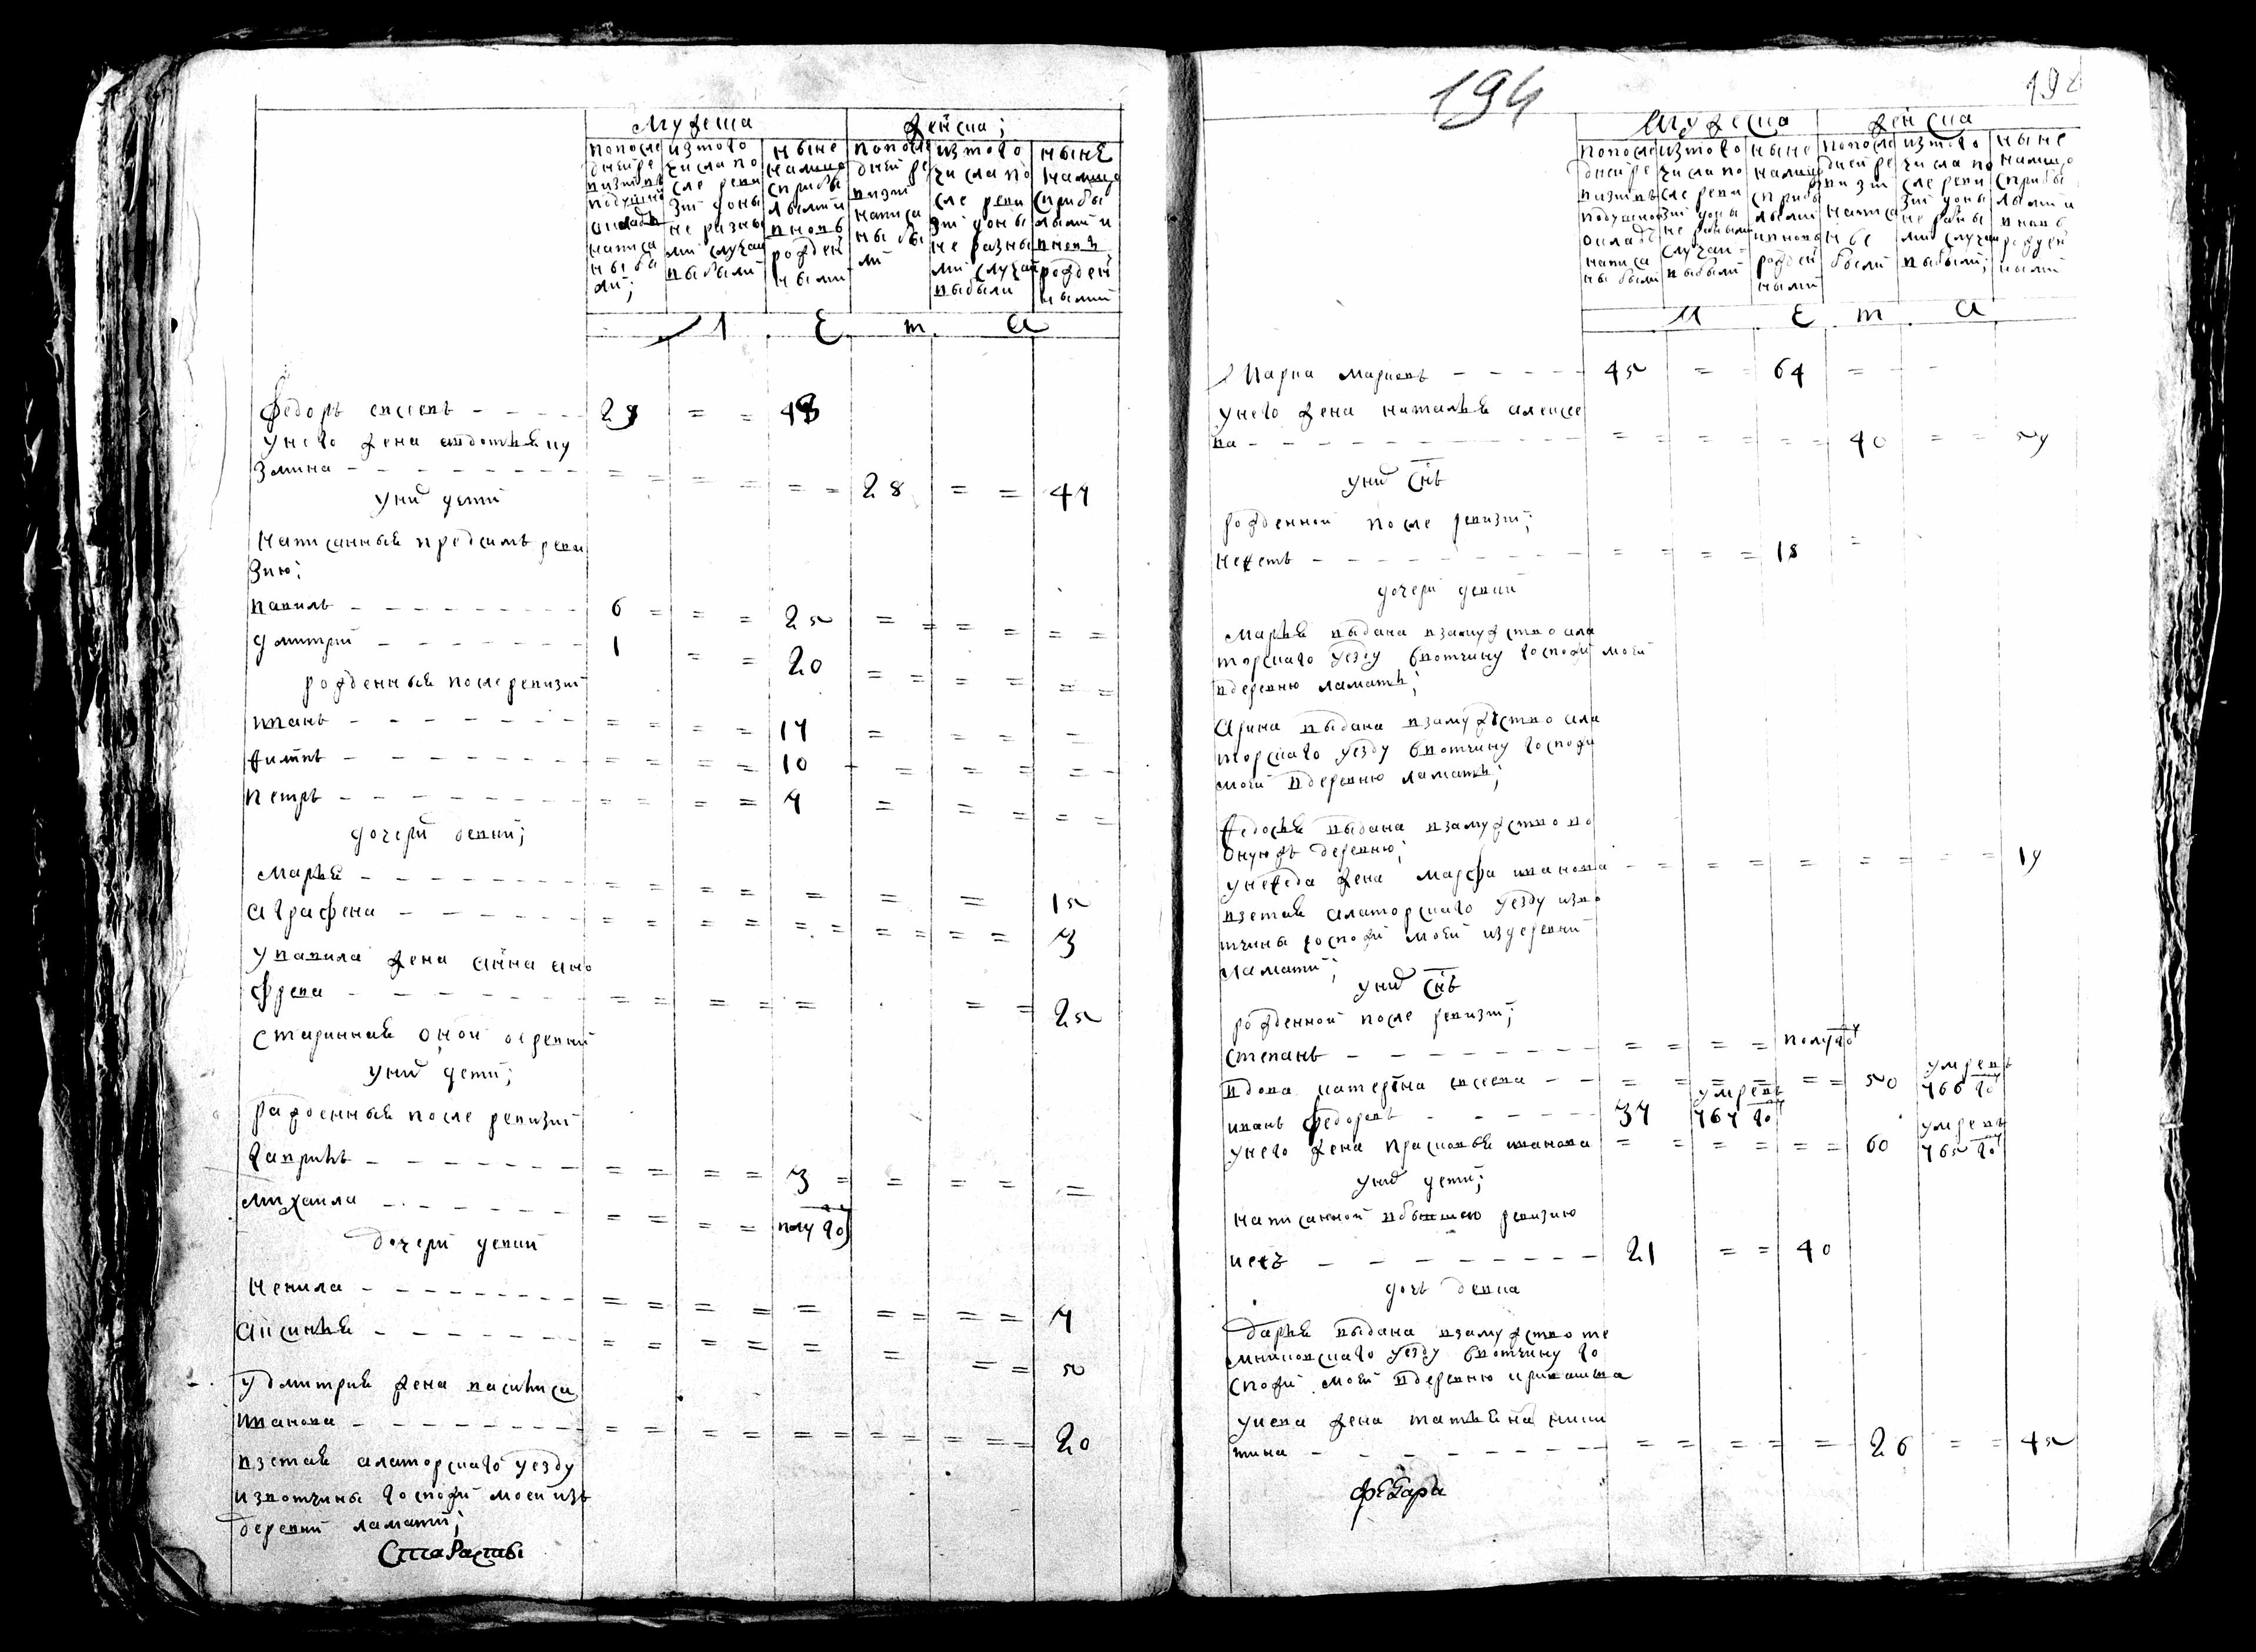 мужеска
женска;
попосле
дней ре
визіи въ
подушно
окладъ
написа
ны бы
ли;
изтого
числа по
сле реви
зіи доны
не разны
ми случаи
выбыли
ныне
налицо
с прибы
лыми и
вновь
рожден
ными
попосле
дней ре
визіи
написа
ны бы
ли
изтого
числа по
сле реви
зіи доны
не разны
ми случаи
выбыли
ныне
налицо
с прибы
лыми и
вновь
рожден
ными
Л Е т а
Федоръ евсеевъ 29 = = 48
у него жена авдотья ку
змина = = = = = = 28 = = 47
у них дети
написанныя пред симъ реви
зию;
вавилъ 6 = = = 25 = = = = =
дмитрий 1 = = 20 = = = = =
рожденныя после ревизіи
иванъ = = = = 17 = = =
филипъ = = = = 10 = = = = =
петръ = = = = 7 = = = =
дочери девки;
марья = = = = = = = 15
аграфена = = = = = = = = = 3
у вавила жена анна ано
фрева = = = = = = = 25
старинная оной деревни
у них дети;
рожденныя после ревизіи
гаврила = = = = 3 = = = = =
михаила = = = = полугод
дочери девки
ненила = = = = = = = = = 7
аксинья = = = = = = = = 5
у дмитрия жена василиса
иванова = = = = = = = = = = 20
взетая алаторскаго уезду
из вотчины госпожи моей изъ
деревни ламати;
Стараставы
194
мужеска
женска
попосле
дней ре
визіи въ
подушной
окладъ
написа
ны были
изтого
числа по
сле реви
зіи доны
не разными
случаи
выбыли
ныне
налицо
с прибы
лыми
и вновь
рожден
ными
попосле
дней ре
визіи
написа
ны
были
изтого
числа по
сле реви
зіи доны
не разны
ми случаи
выбыли;
ныне
налицо
с прибы
лыми и
вновь
рожден
ными
Л Е т а
Карпа марковъ 45 = 64 =
у него жена наталья алексее
ва = = = = = 40 = = 59
у них снъ
рожденной после ревизіи;
нефетъ = = = = 18 =
дочери девки
марья выдана взамужство ала
торскаго уезду в вотчину госпожи моей
в деревню ламати;
Арина выдана взамужство ала
торскаго уезду в вотчину госпожи
моей в деревню ламати;
федосья выдана взамужство во
оную ж деревню;
у нефеда жена марфа иванова = = = = 19
взетая алаторскаго уезду из во
тчины госпожи моей из деревни
ламати;
у них снъ
рожденной после ревизіи;
степанъ = = = = полугод
вдова катерина евсеева = = = = = = 50 умре въ 766 год
иванъ федоровъ 37 умре въ 767 год
у него жена прасковья иванова = = = = = 60 умре въ 765 год
у них дети;
написанной в бывшею ревизию
иевъ 21 = = 40
дочь девка
дарья выдана взамужство те
мниковскаго уезду в вотчину го
спожи моей в деревню
у иева жена татьяна ники
тина = = = = = 26 = = 45